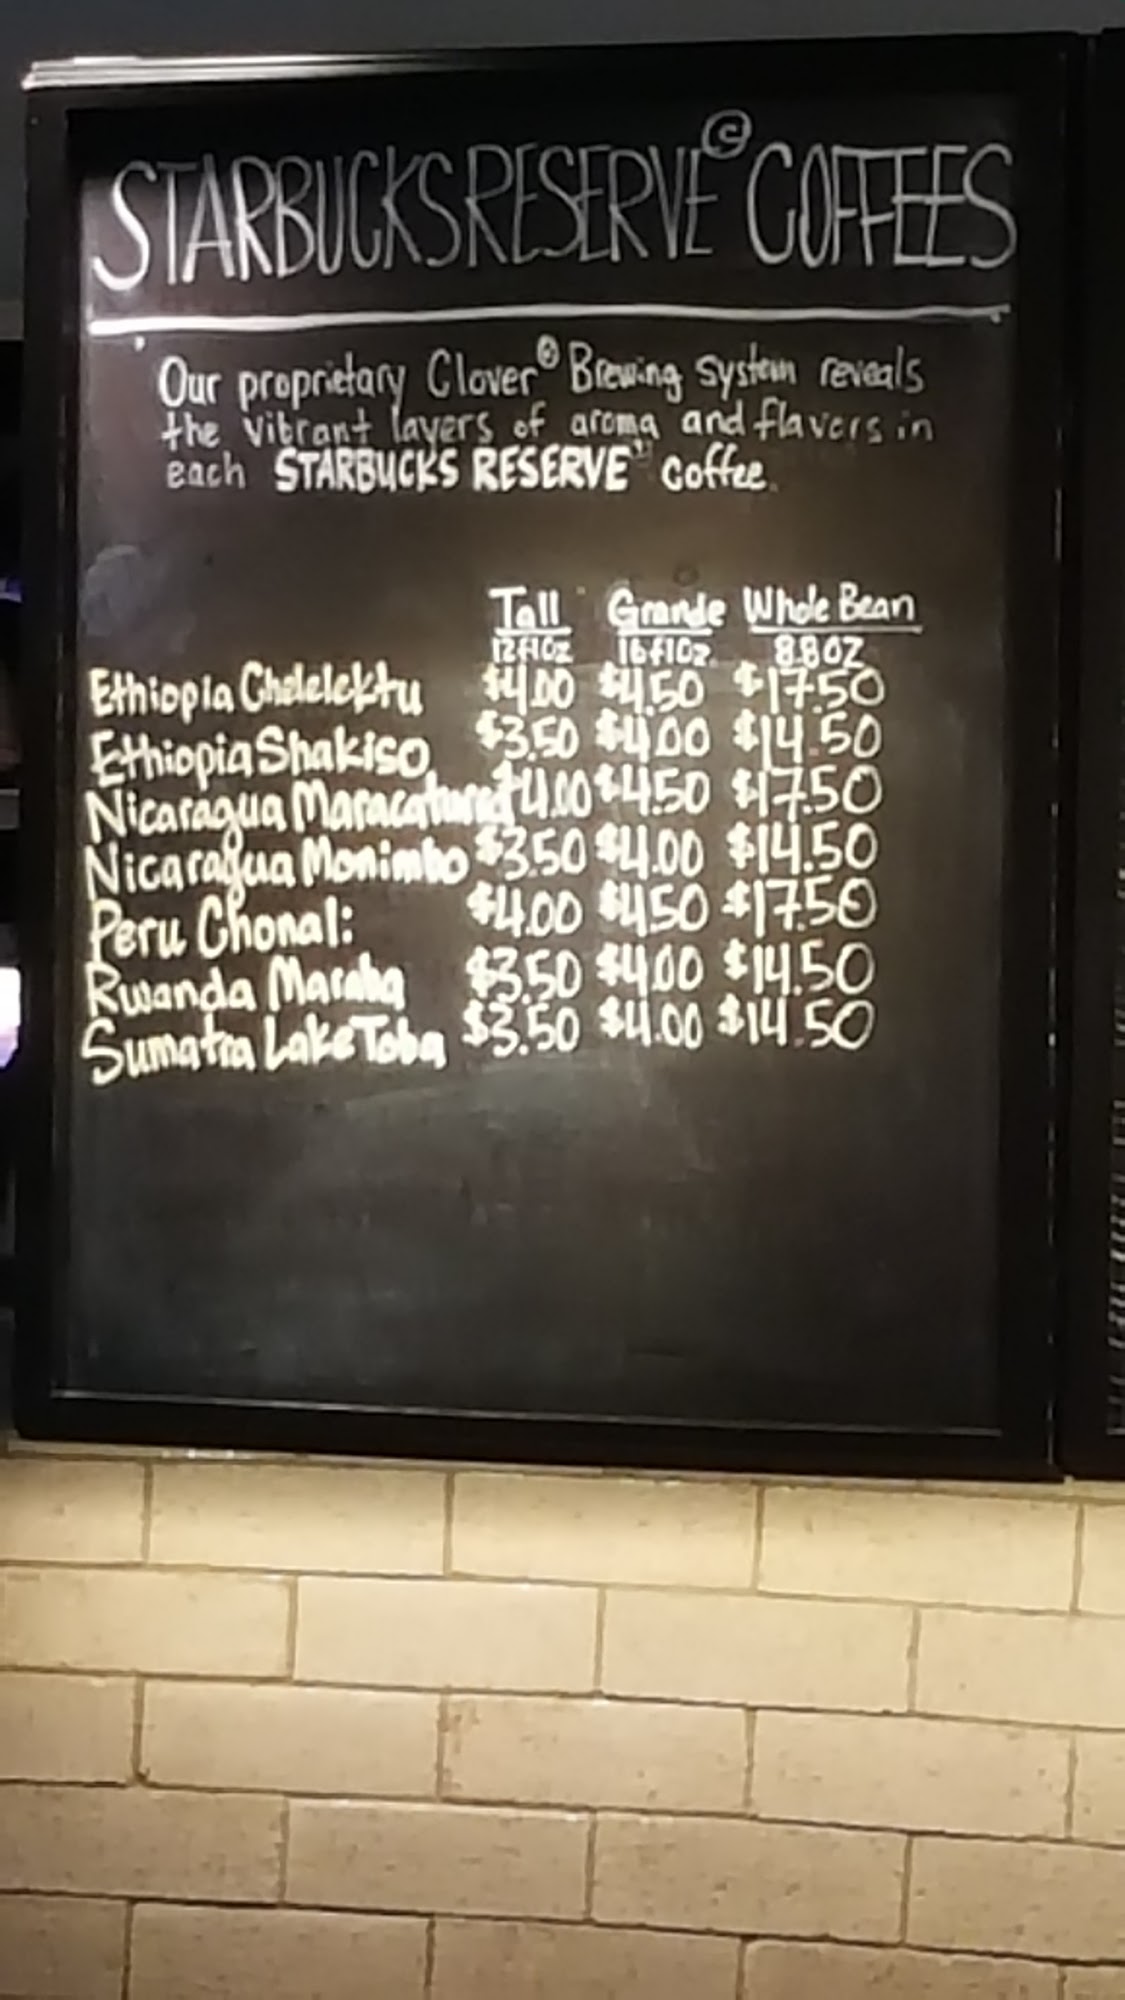 STARBUCKS RESERVE © COFFEES
Our proprietary Clover® Brewing system reveals
the vibrant layers of aroma and flavors in
each STARBUCKS RESERVE coffee.
Tall Grande Whole Bean
12 fl Oz 16 fl Oz. 8.8 OZ
Ethiopia Chelelektu $4.00 $4.50 $17.50
Ethiopia Shakiso $3.50 $4.00 $14.50
Nicaragua Maracatured $4.00 $4.50 $17.50
Nicaragua Monimbo $3.50 $4.00 $14.50
Peru Chonal: $4.00 $4.50 $17.50
Rwanda Maraba $3.50 $4.00 $14.50
Sumatra Lake Toba $3.50 $4.00 $14.50